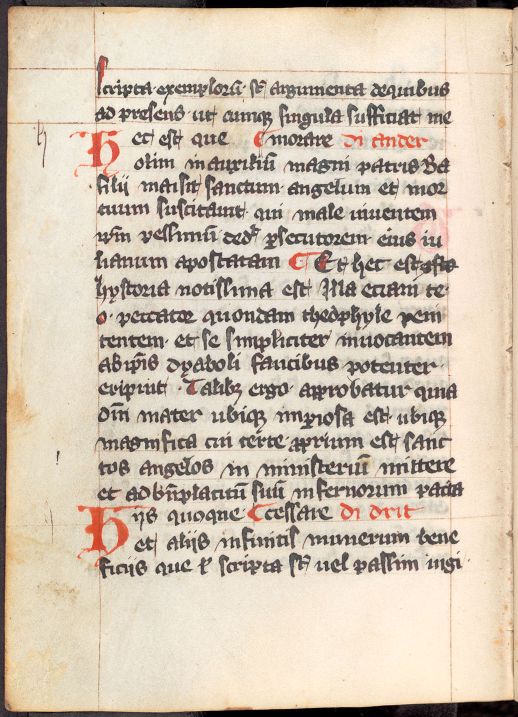 scripta exemplorū sūt argumenta dequibus
ad presens ut cumqꝫ singula sufficiat me
Hec est que morare di ander
olim in auxiliū magni patris Ba
silii maisit sanctum angelum et mor
tuum suscitauit qui male uiuentem
pessimū ꝑsecutorem eius iu
lianum apostatam Et hec est
hystoria notissima est Illa eciam te
o peccator quondam theophyle peni
tentem et se simpliciter inuocantem
ab ip̄is dyaboli faucibus potenter
eripuit Talibꝫ ergo approbatur quia
dn̄i mater ubiqꝫ imꝑiosa est ubiqꝫ
magnifica cui certe ꝓprium est sanc
tos angelos in ministeriū mittere
et ad bn̄placitū suū infernorum pacta
Hiis quoque cessare di drit
et aliis infinitis munerum bene
ficiis que ł scripta sūt uel passim iugi